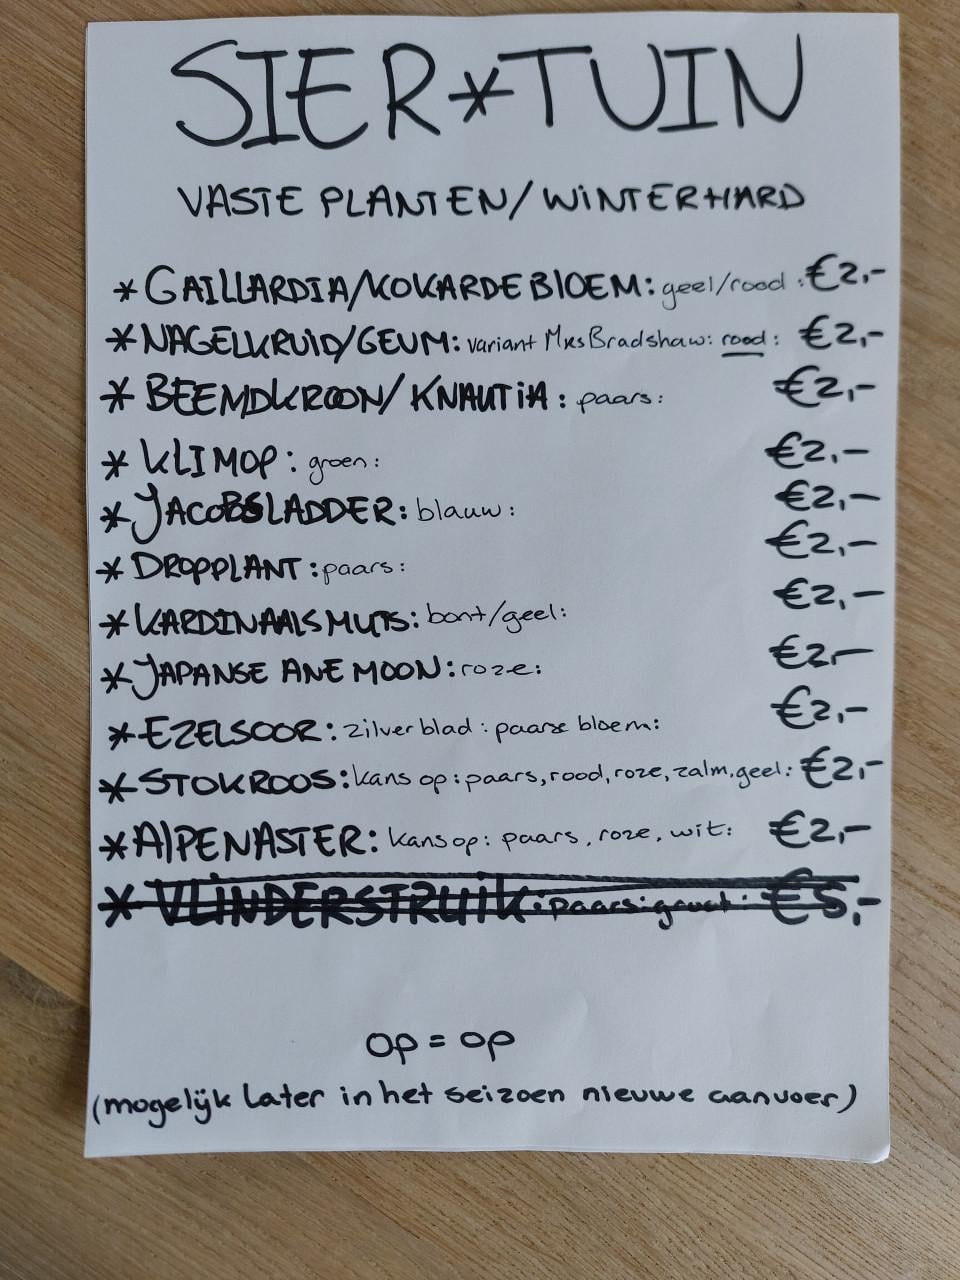 SIER*TUIN
VASTE PLANTEN/WINTERHARD
* GAILLARDIA/KOKARDEBLOEM: geel/rood : €2,-
* NAGELKRUID/GEUM: variant Mrs Bradshaw: rood: €2,-
* BEEMDKROON/KNAUTIA: paars: €2,-
* KLIMOP: groen: €2,-
* JACOBSLADDER: blauw: €2,-
* DROPPLANT: paars: €2,-
* KARDINAALSMUTS: bont/geel: €2,-
* JAPANSE ANEMOON: roze: €2,-
* EZELSOOR: zilverblad: paarse bloem: €2,-
* STOKROOS: kans op: paars, rood, roze, zalm, geel: €2,-
* ALPENASTER: kans op: paars, roze, wit: €2,-
* VLINDERSTRUIK: paars: groot: €5,-
op = op
(mogelijk later in het seizoen nieuwe aanvoer)